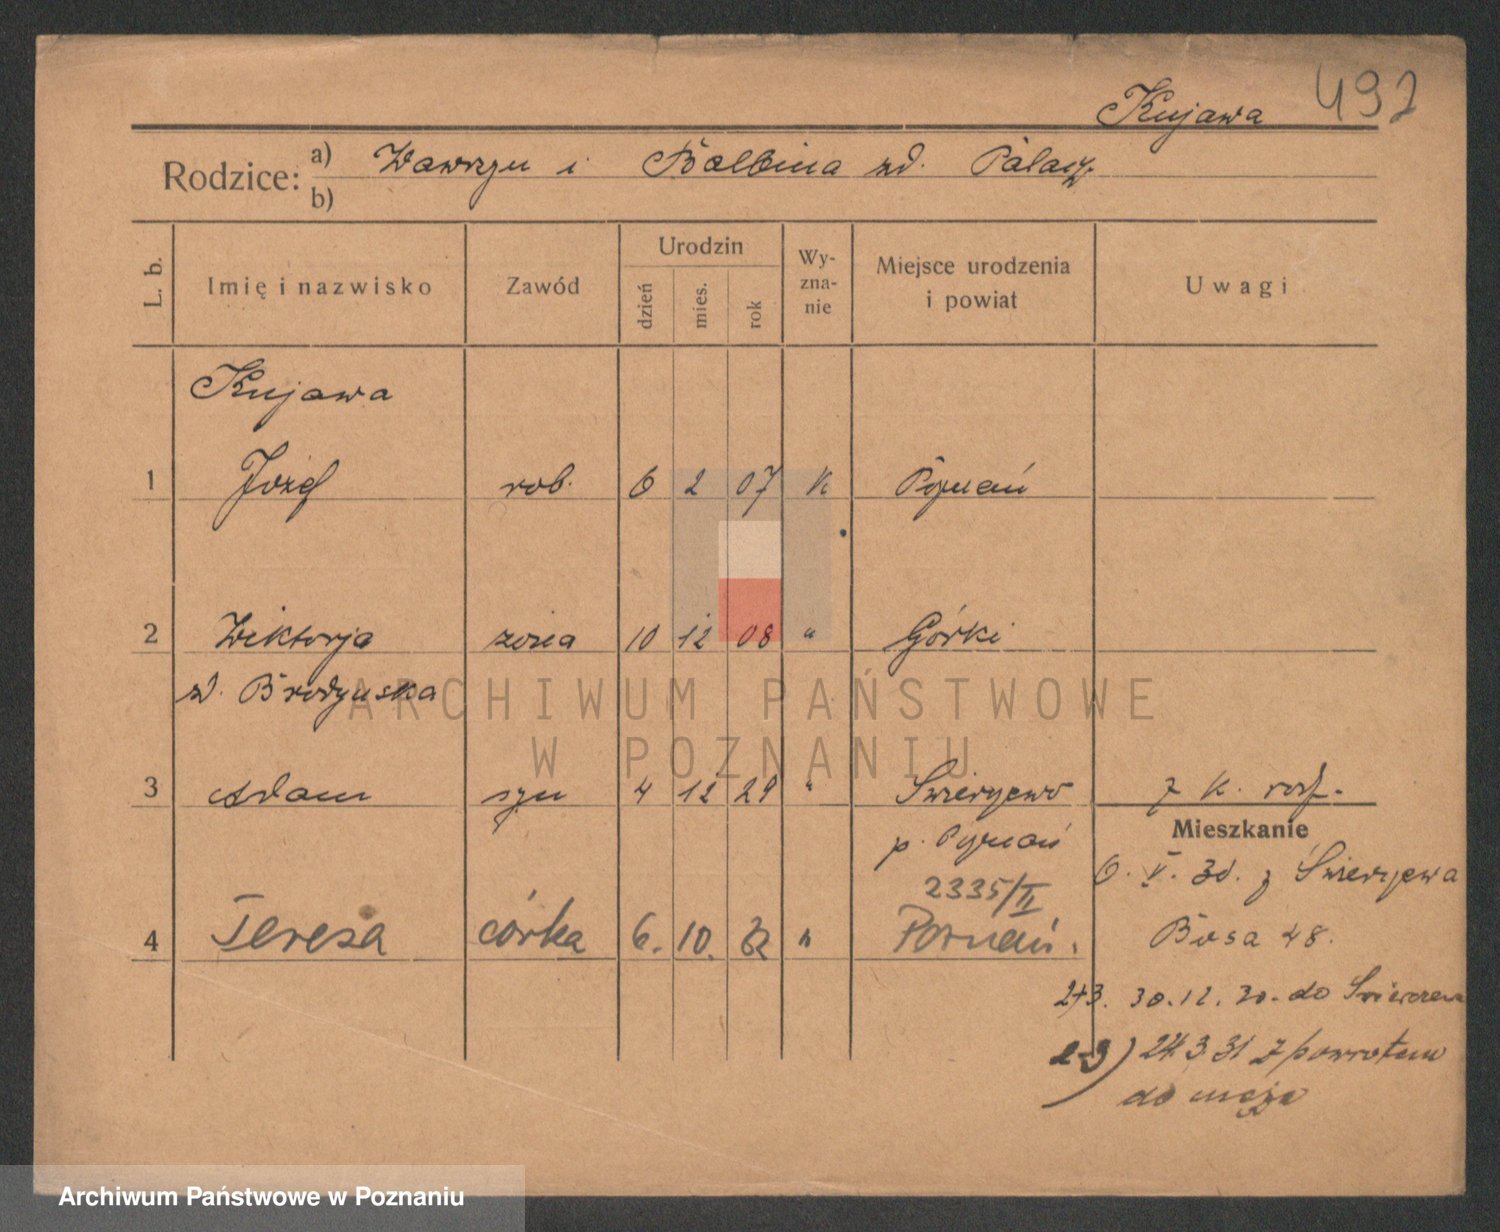 Kujawa 492
Rodzice: a) Wawrzyn i Balbina zd. Palacz.
b)
L. b. Imię i nazwisko Zawód Urodzin dzień mies. rok Wy-zna-nie Miejsce urodzenia i powiat Uwagi
Kujawa
1 Józef rob. 6 2 07 K Poznań
2 Wiktorja żona 10 12 08 " Górki
zd. Brodzynska
ARCHIWUM PAŃSTWOWE
W POZNANIU
3 Adam syn 4 12 29 " Świerczewo z K. rodz.
p. Poznań
Mieszkanie
6. V. 30. z Świerczewa
2335/II
4 Teresa córka 6. 10. 32 " Poznań.
Bosa 48.
2+3. 30.12.30. do Świerczewa
2-3) 24.3.31 z powrotem
do męża
Archiwum Państwowe w Poznaniu